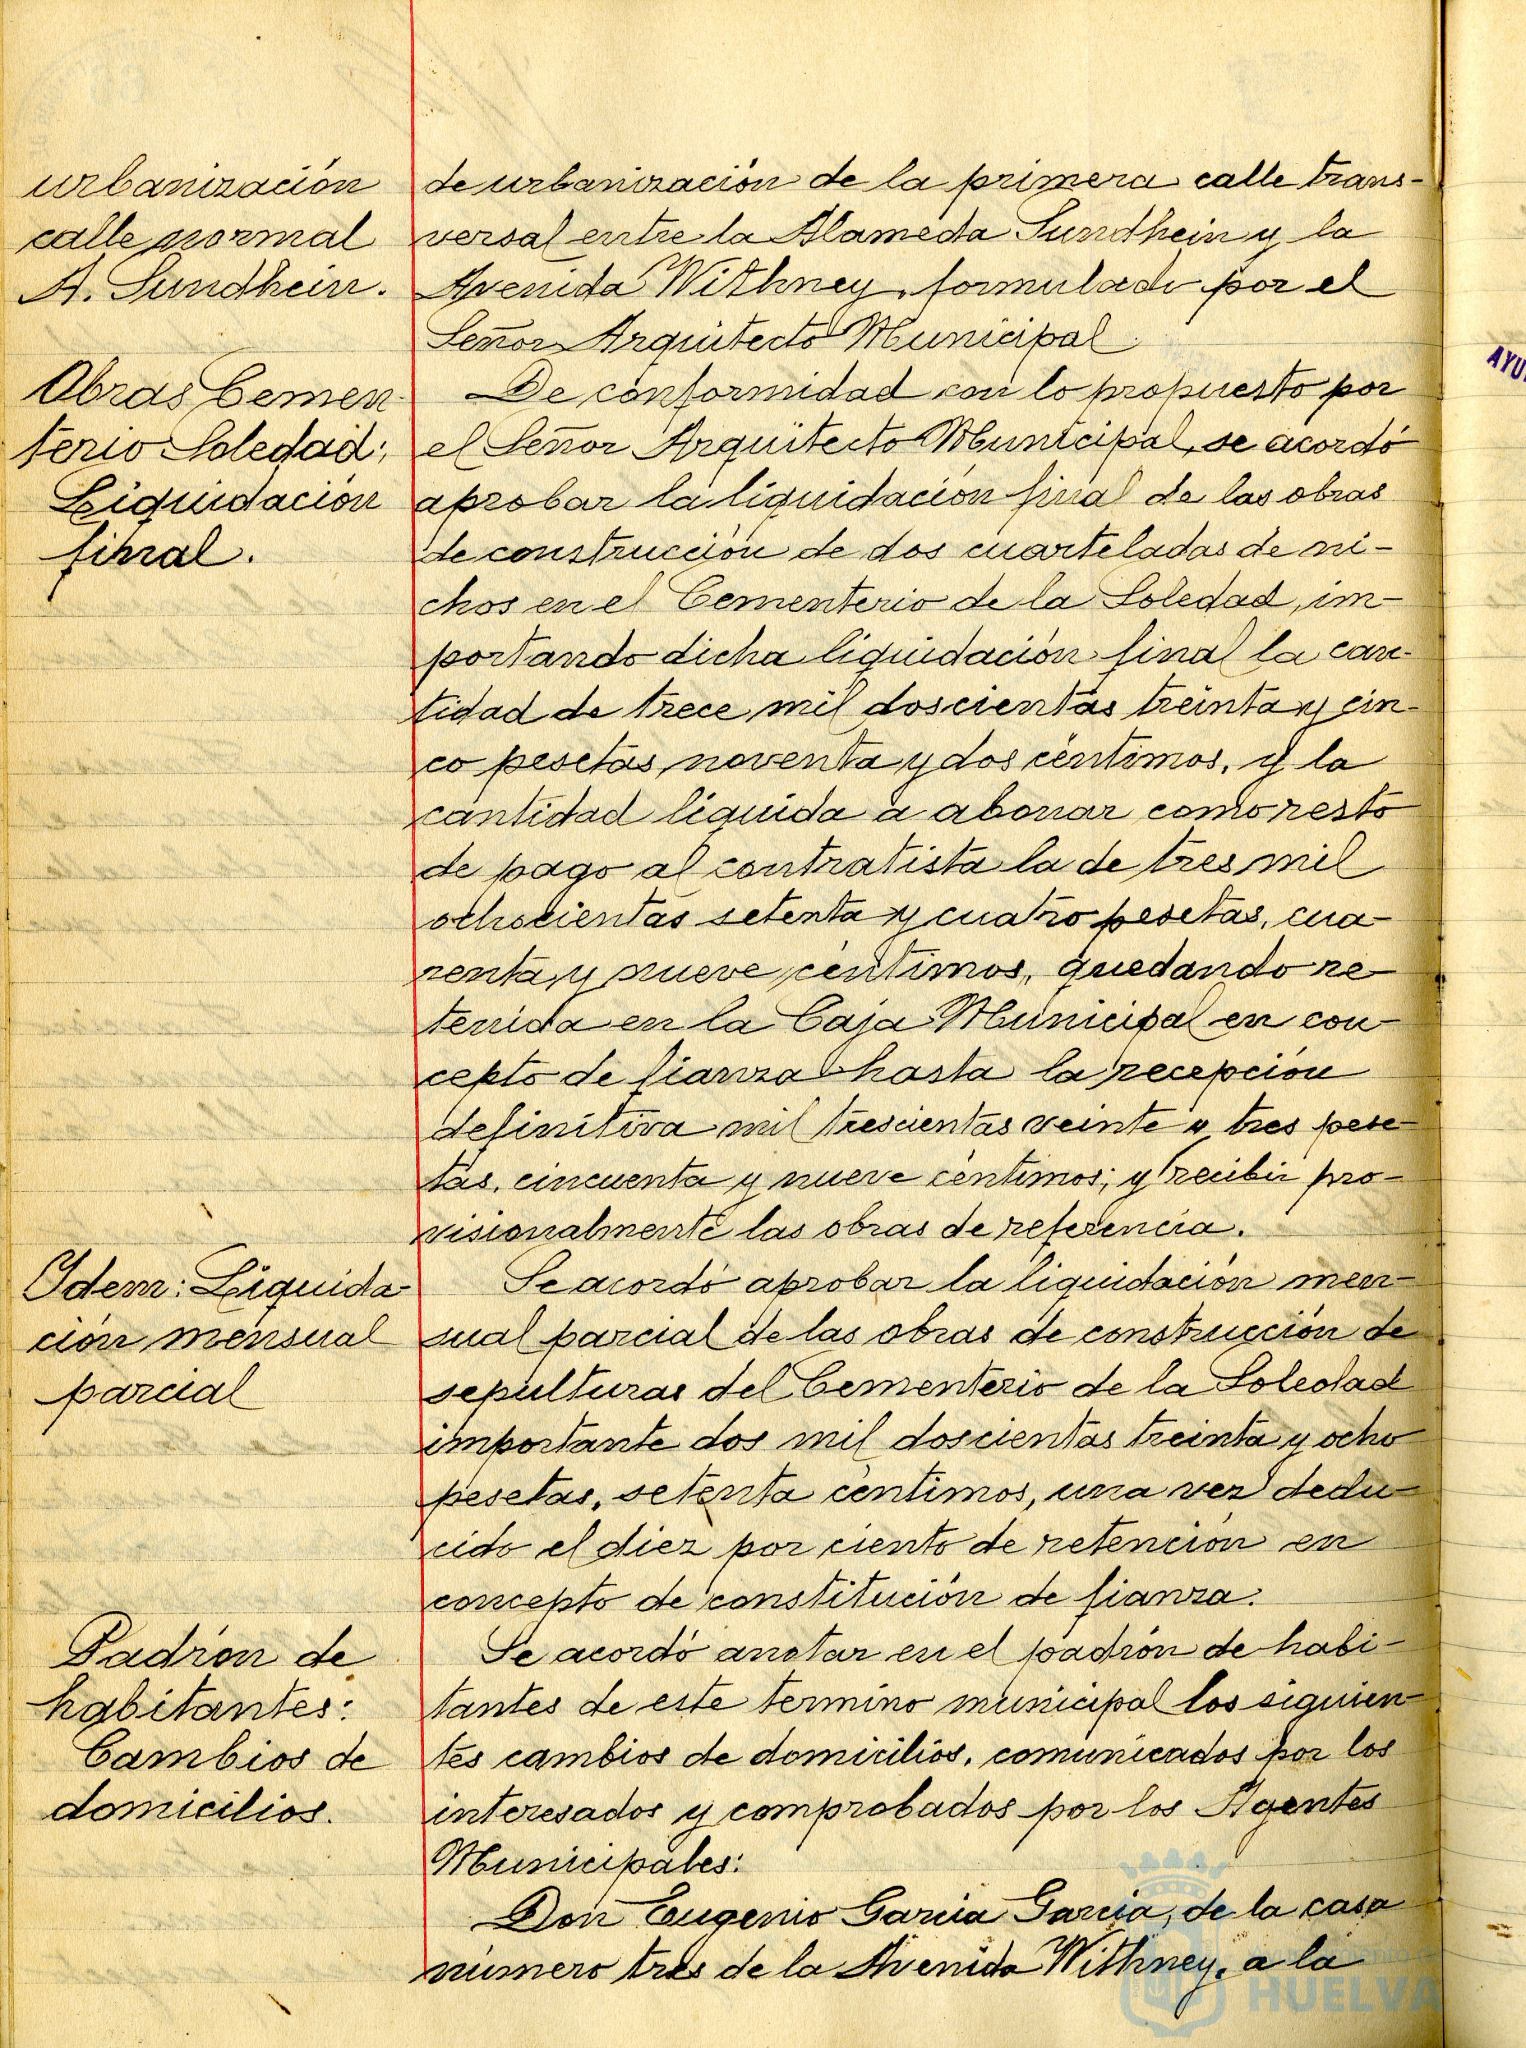 urbanización
calle normal
A. Sundhein.
de urbanización de la primera calle trans-
versal entre la Alameda Sundhein y la
Avenida Withney, formulado por el
Señor Arquitecto Municipal.
Obras Cemen-
terio Soledad;
Liquidación
final.
De conformidad con lo propuesto por
el Señor Arquitecto Municipal, se acordó
aprobar la liquidación final de las obras
de construcción de dos cuarteladas de ni-
chos en el Cementerio de la Soledad, im-
portando dicha liquidación final la can-
tidad de trece mil doscientas treinta y cin-
co pesetas, noventa y dos céntimos, y la
cantidad líquida a abonar como resto
de pago al contratista la de tres mil
ochocientas setenta y cuatro pesetas, cua-
renta y nueve céntimos, quedando re-
tenida en la Caja Municipal en con-
cepto de fianza hasta la recepción
definitiva mil trescientas veinte y tres pese-
tas, cincuenta y nueve céntimos; y recibir pro-
visionalmente las obras de referencia.
Idem: Liquida-
ción mensual
parcial
Se acordó aprobar la liquidación men-
sual parcial de las obras de construcción de
sepulturas del Cementerio de la Soledad
importante dos mil doscientas treinta y ocho
pesetas, setenta céntimos, una vez dedu-
cido el diez por ciento de retención en
concepto de constitución de fianza.
Padrón de
habitantes:
Cambios de
domicilios.
Se acordó anotar en el padrón de habi-
tantes de este termino municipal los siguien-
tes cambios de domicilios, comunicados por los
interesados y comprobados por los Agentes
Municipales:
Don Eugenio Garcia Garcia, de la casa
número tres de la Avenida Withney, a la
HUELVA
AYU